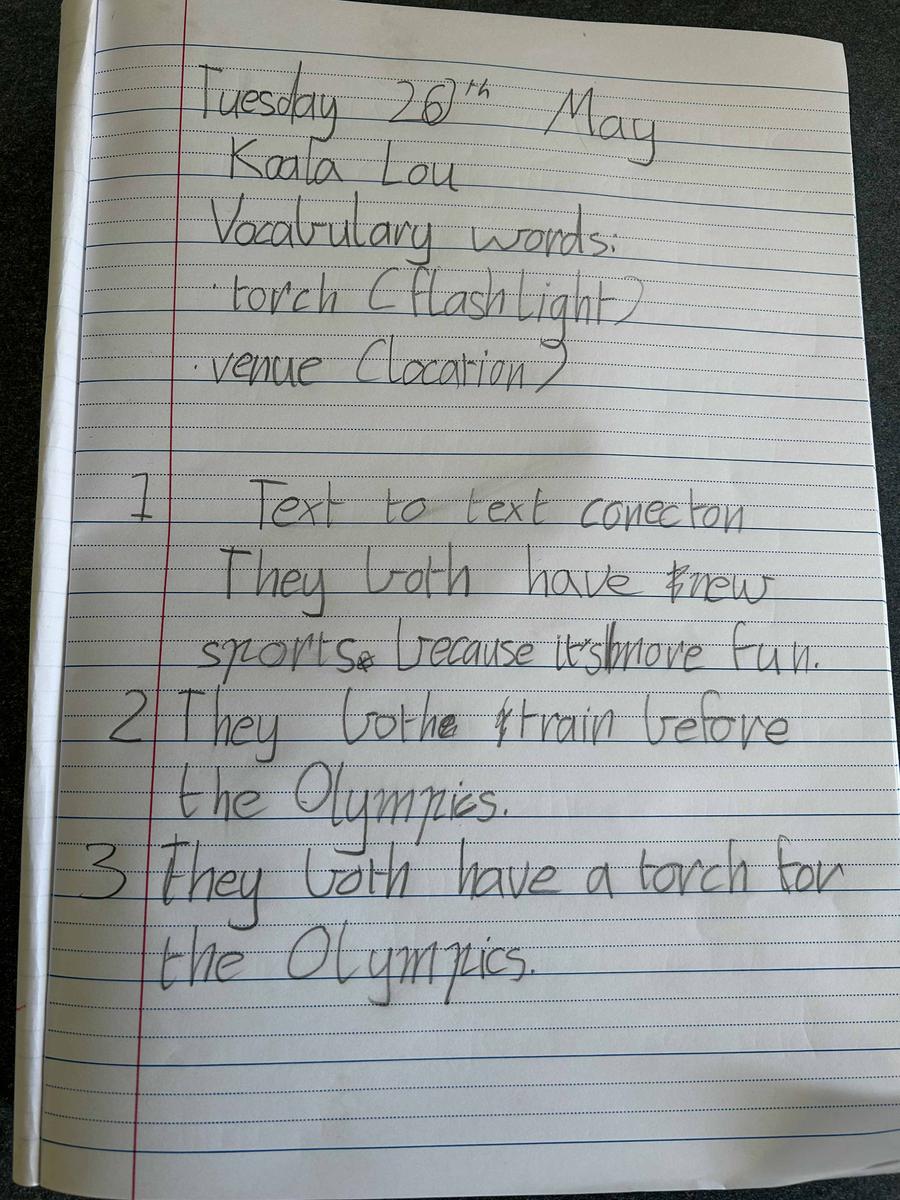 Tuesday 26th May
Koala Lou
Vocabulary words:
· torch (flashlight)
· venue (location)
1 Text to text conecton
They both have new
sports because it's more fun.
2 They bothe train before
the Olympics.
3 They both have a torch for
the Olympics.